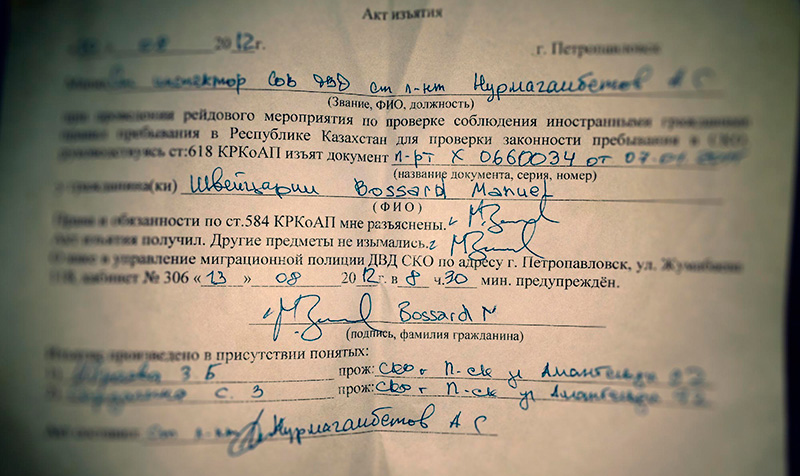 Акт изъятия
08 2012г. г. Петропавловск
инспектор СОБ ДВД ст л-нт Нурмагамбетов А С
(Звание, ФИО, должность)
при проведении рейдового мероприятия по проверке соблюдения иностранными гражданами
пребывания в Республике Казахстан для проверки законности пребывания в СКО
руководствуясь ст:618 КРКоАП изъят документ п-рт X 0660034 от 07.01
(название документа, серия, номер)
у гражданина(ки) Швейцарии Bossard Manuel
(ФИО)
Права и обязанности по ст.584 КРКоАП мне разъяснены.
Акт изъятия получил. Другие предметы не изымались.
в управление миграционной полиции ДВД СКО по адресу г. Петропавловск, ул.
кабинет № 306 «13» 08 2012г. в 8 ч.30 мин. предупреждён.
Bossard M
(подпись, фамилия гражданина)
произведено в присутствии понятых:
З Б прож: СКО г П-ск ул Амангельды
С. З прож: СКО г П-ск ул Амангельды
Акт ст л-нт Нурмагамбетов А С